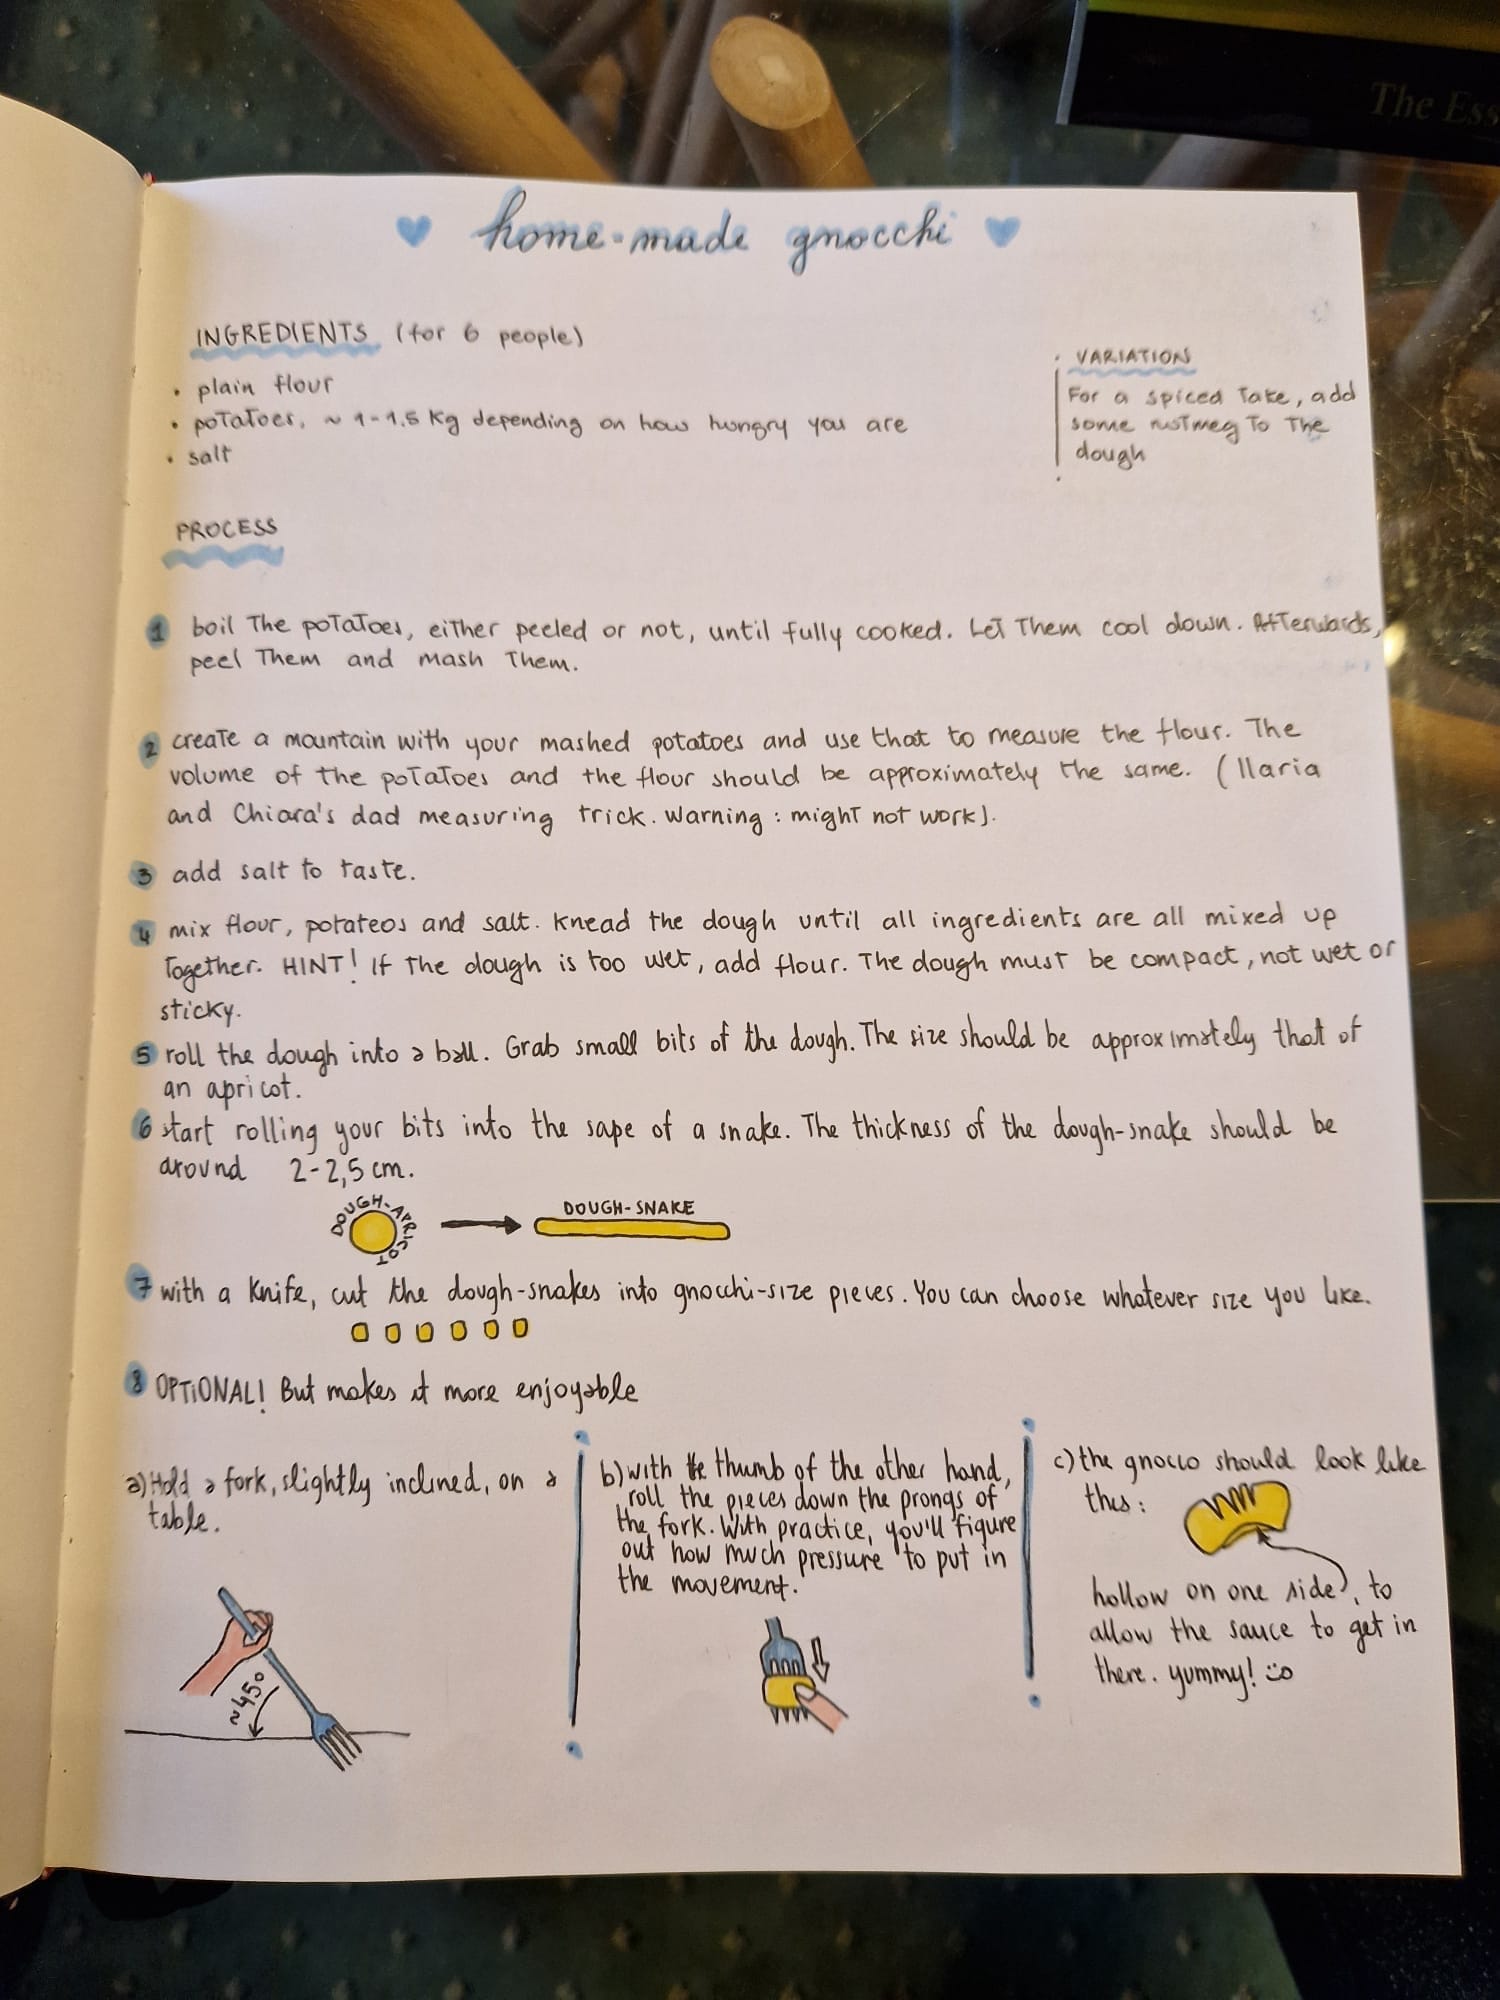 The Ess
home-made gnocchi
INGREDIENTS (for 6 people)
• plain flour
• potatoes, ~ 1-1.5 Kg depending on how hungry you are
• salt
VARIATION
For a spiced take, add
some nutmeg to the
dough
PROCESS
1 boil the potatoes, either peeled or not, until fully cooked. Let them cool down. Afterwards,
peel them and mash them.
2 create a mountain with your mashed potatoes and use that to measure the flour. The
volume of the potatoes and the flour should be approximately the same. (Ilaria
and Chiara's dad measuring trick. Warning: might not work).
3 add salt to taste.
4 mix flour, potateos and salt. Knead the dough until all ingredients are all mixed up
together. HINT! If the dough is too wet, add flour. The dough must be compact, not wet or
sticky.
5 roll the dough into a ball. Grab small bits of the dough. The size should be approximately that of
an apricot.
6 start rolling your bits into the sape of a snake. The thickness of the dough-snake should be
around 2-2,5 cm.
DOUGH-APRICOT
DOUGH-SNAKE
7 with a knife, cut the dough-snakes into gnocchi-size pieces. You can choose whatever size you like.
8 OPTIONAL! But makes it more enjoyable
a) Hold a fork, slightly inclined, on a
table.
~45°
b) with the thumb of the other hand,
roll the pieces down the prongs of
the fork. With practice, you'll figure
out how much pressure to put in
the movement.
c) the gnocco should look like
this:
hollow on one side, to
allow the sauce to get in
there. yummy! :)